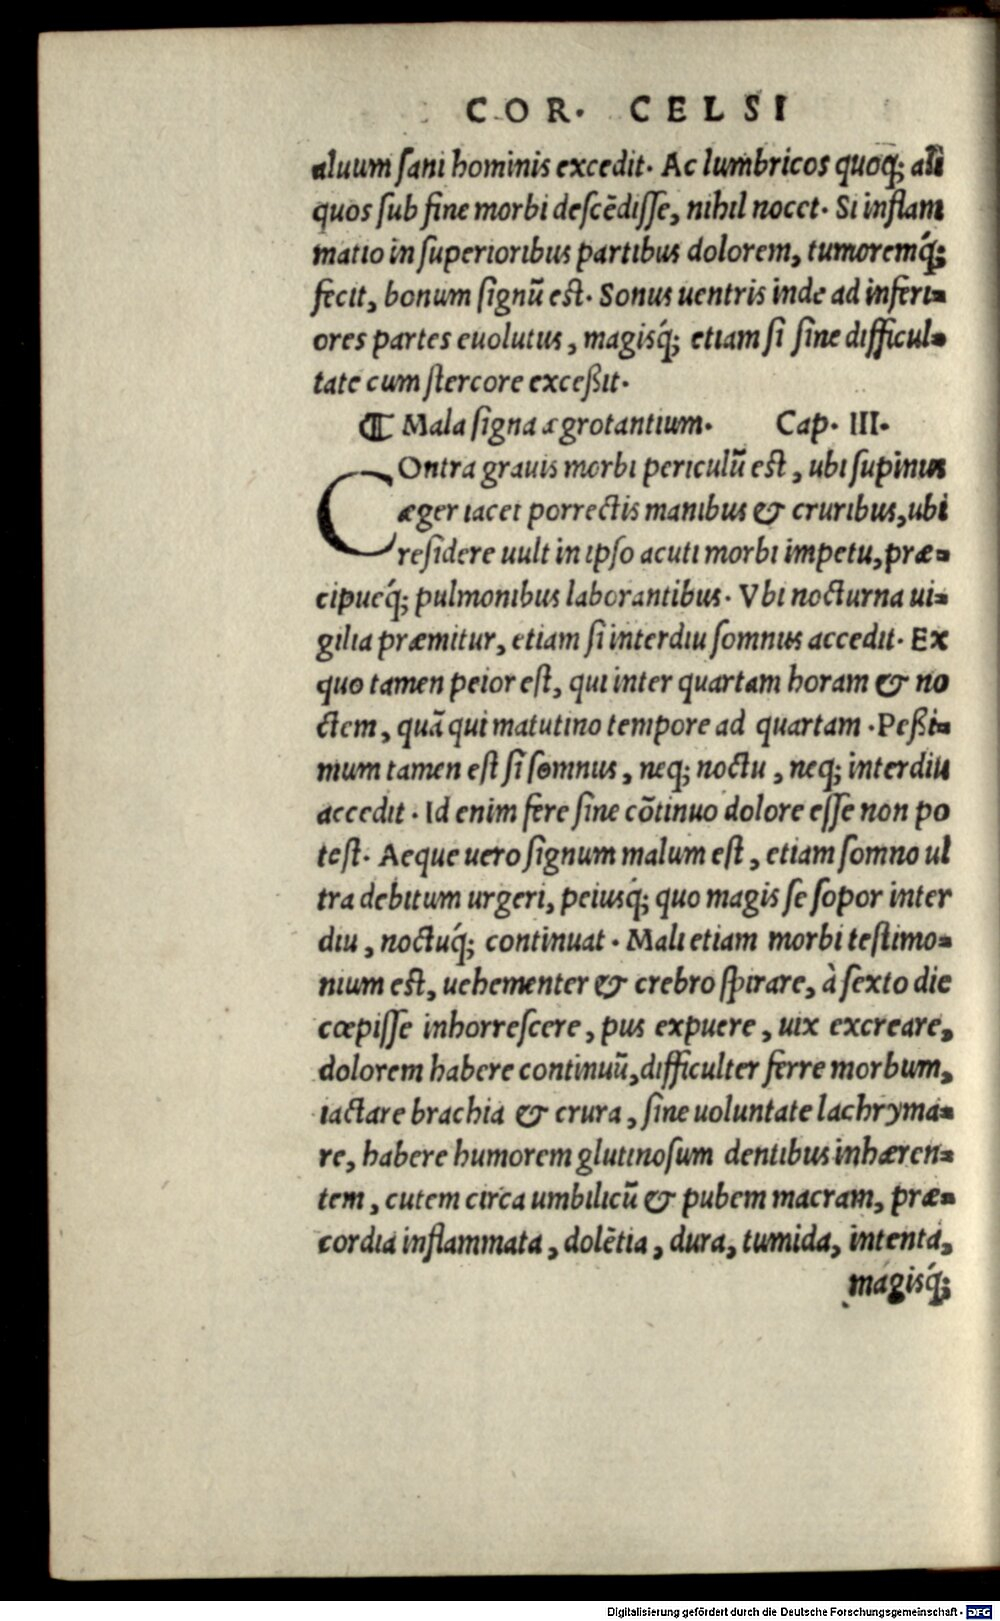 COR. CELSI
aluum ſani hominis excedit. Ac lumbricos quoq; ali
quos ſub fine morbi deſcēdiſſe, nihil nocet. Si inflam
matio in ſuperioribus partibus dolorem, tumoremq́;
fecit, bonum ſignū eſt. Sonus uentris inde ad inferi=
ores partes euolutus, magisq́; etiam ſi ſine difficul=
tate cum ſtercore exceßit.
¶ Mala ſigna ægrotantium. Cap. III.
COntra grauis morbi periculū eſt, ubi ſupinus
æger iacet porrectis manibus & cruribus, ubi
reſidere uult in ipſo acuti morbi impetu, præ=
cipueq́; pulmonibus laborantibus. Vbi nocturna ui=
gilia præmitur, etiam ſi interdiu ſomnus accedit. Ex
quo tamen peior eſt, qui inter quartam horam & no
ctem, quā qui matutino tempore ad quartam. Peßi=
mum tamen eſt ſi ſomnus, neq; noctu, neq; interdiu
accedit. Id enim fere ſine cōtinuo dolore eſſe non po
teſt. Aeque uero ſignum malum eſt, etiam ſomno ul
tra debitum urgeri, peiusq́; quo magis ſe ſopor inter
diu, noctuq́; continuat. Mali etiam morbi teſtimo=
nium eſt, uehementer & crebro ſpirare, à ſexto die
cœpiſſe inhorreſcere, pus expuere, uix excreare,
dolorem habere continuū, difficulter ferre morbum,
iactare brachia & crura, ſine uoluntate lachryma=
re, habere humorem glutinoſum dentibus inhæren=
tem, cutem circa umbilicū & pubem macram, præ=
cordia inflammata, dolētia, dura, tumida, intenta,
magisq́;
Digitalisierung gefördert durch die Deutsche Forschungsgemeinschaft - DFG